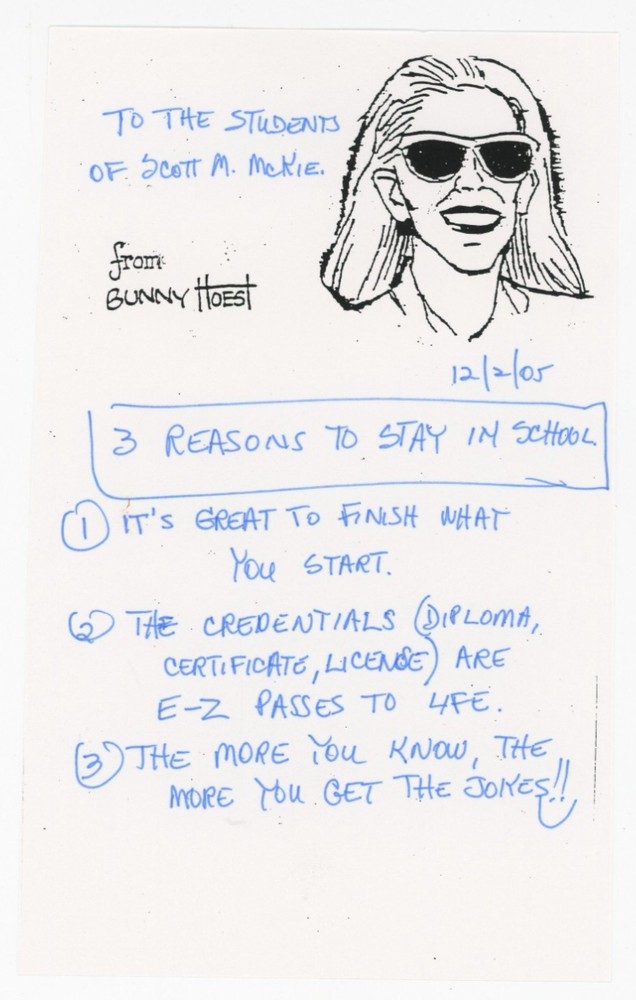 TO THE STUDENTS
OF SCOTT M. McKIE.
from
BUNNY HOEST
12/2/05
3 REASONS TO STAY IN SCHOOL
1 IT'S GREAT TO FINISH WHAT
YOU START.
2 THE CREDENTIALS (DIPLOMA,
CERTIFICATE, LICENSE) ARE
E-Z PASSES TO LIFE.
3 THE MORE YOU KNOW, THE
MORE YOU GET THE JOKES!!